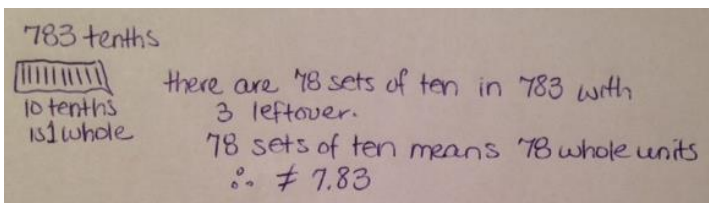 783 tenths
10 tenths
is 1 whole
there are 78 sets of ten in 783 with
3 leftover.
78 sets of ten means 78 whole units
∴ ≠ 7.83